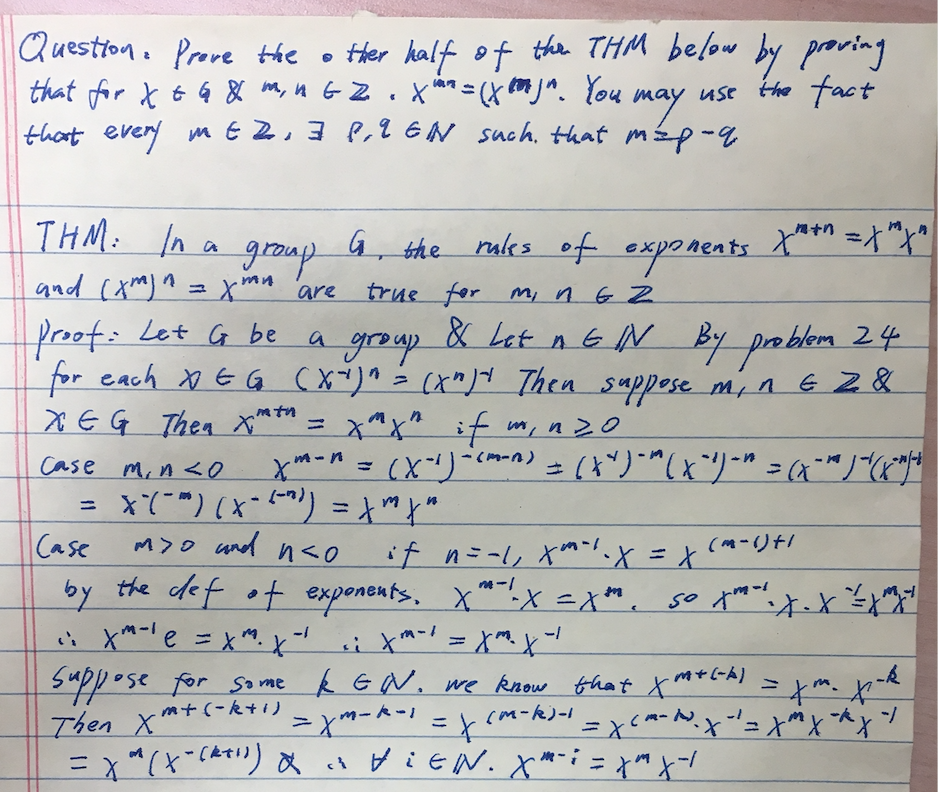 Question: Prove the other half of the THM below by proving
that for x ∈ G & m, n ∈ Z. x^{mn} = (x^{m})^{n}. You may use the fact
that every m ∈ Z, ∃ p, q ∈ N such that m = p - q
THM: In a group G, the rules of exponents x^{m+n} = x^{m}x^{n}
and (x^{m})^{n} = x^{mn} are true for m, n ∈ Z
Proof: Let G be a group & Let n ∈ N By problem 24
for each x ∈ G (x^{-1})^{n} = (x^{n})^{-1} Then suppose m, n ∈ Z &
x ∈ G Then x^{m+n} = x^{m}x^{n} if m, n ≥ 0
Case m, n < 0 x^{m-n} = (x^{-1})^{-(m-n)} = (x^{-1})^{-m}(x^{-1})^{-n} = (x^{-m})^{-1}(x^{-n})^{-1}
= x^{-(-m)}(x^{-(-n)}) = x^{m}x^{n}
Case m > 0 and n < 0 if n = -1, x^{m-1}·x = x^{(m-1)+1}
by the def of exponents. x^{m-1}·x = x^{m}. so x^{m-1}·x·x^{-1} = x^{m}x^{-1}
∴ x^{m-1}e = x^{m}·x^{-1} ∴ x^{m-1} = x^{m}·x^{-1}
Suppose for some k ∈ N. we know that x^{m+(-k)} = x^{m}·x^{-k}
Then x^{m+(-k+1)} = x^{m-k-1} = x^{(m-k)-1} = x^{(m-k)}·x^{-1} = x^{m}x^{-k}x^{-1}
= x^{m}(x^{-(k+1)}) ∴ ∀ i ∈ N. x^{m-i} = x^{m}x^{-1}